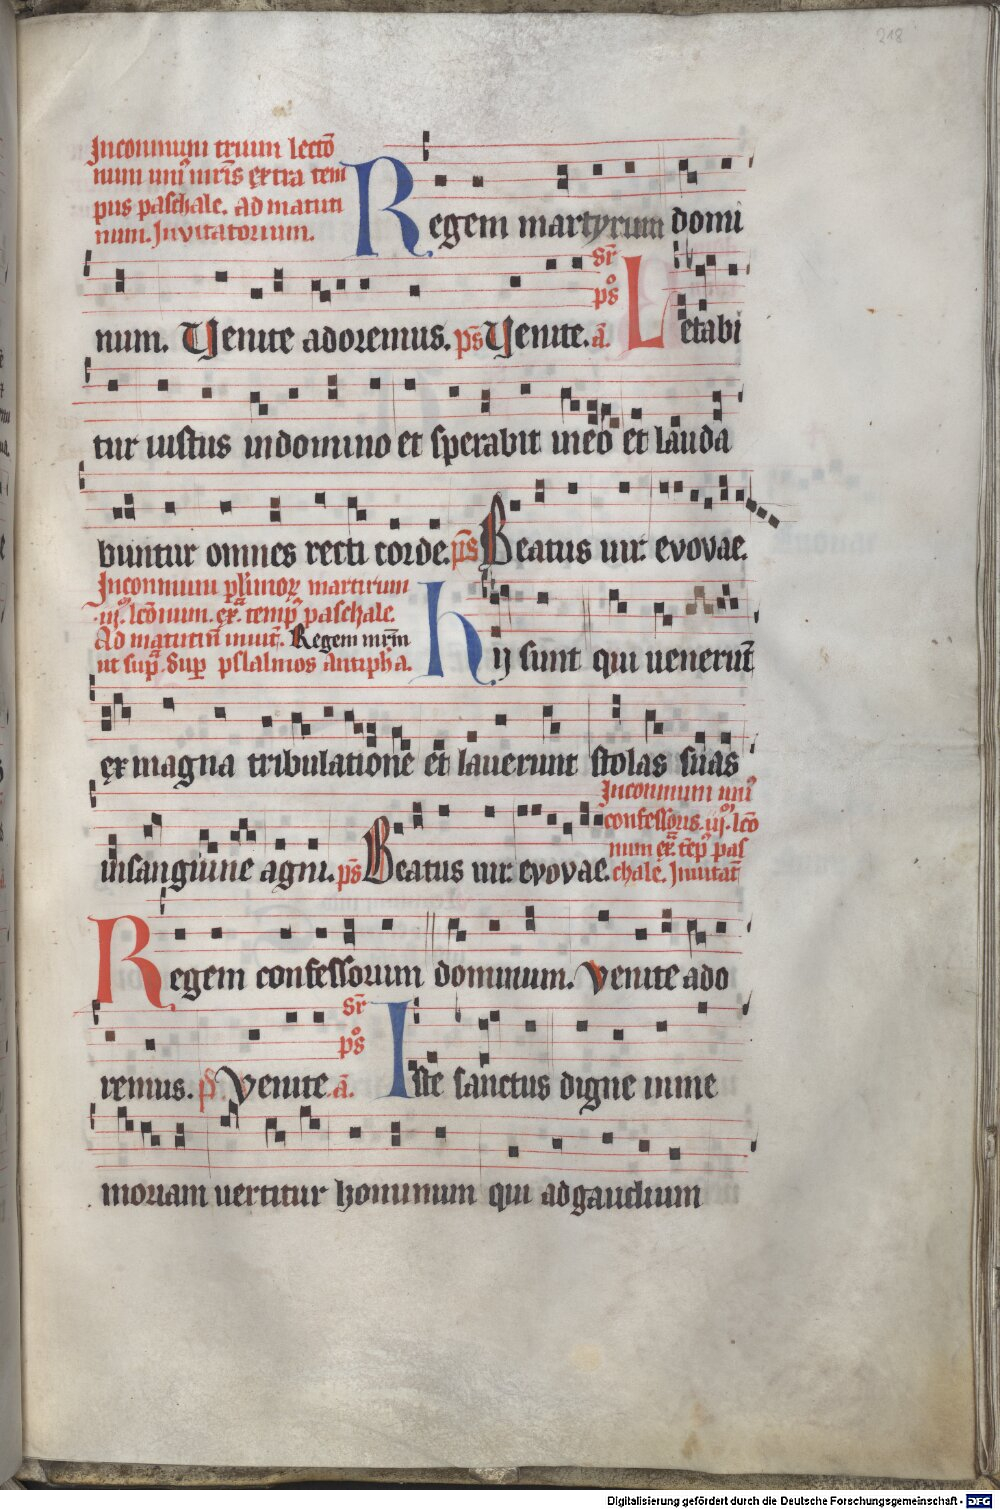 218
In communi trium lectō
num uniꝰ mr̄is extra tem
pus paschale. Ad matuti
num. Invitatorium.
Regem martyrum domi
num. Venite adoremus. ps̄ Venite. sr̄ pōs ā. Letabi
tur iustus in domino et sperabit in eo et lauda
buntur omnes recti corde. ps̄ Beatus uir. evovae.
In communi plīmoꝝ martirum
.iij. lc̄onum. ex̄ temp̄ paschale.
Ad matutin̄ inuit̄. Regem mr̄m
ut sup̄. Sup̄ pslalmos antiph̄a.
Hij sunt qui uenerūt
ex magna tribulatione et lauerunt stolas suas
in sanguine agni. ps̄ Beatus uir. evovae.
In commum uniꝰ
confessoris .iij. lc̄o
num ex̄ tēp̄ pas
chale. Inuitat̄
Regem confessorum dominum. Venite ado
remus. ps̄ Venite. sr̄ pōs ā. Iste sanctus digne in me
moriam uertitur hominum qui ad gaudium
Digitalisierung gefördert durch die Deutsche Forschungsgemeinschaft - DFG